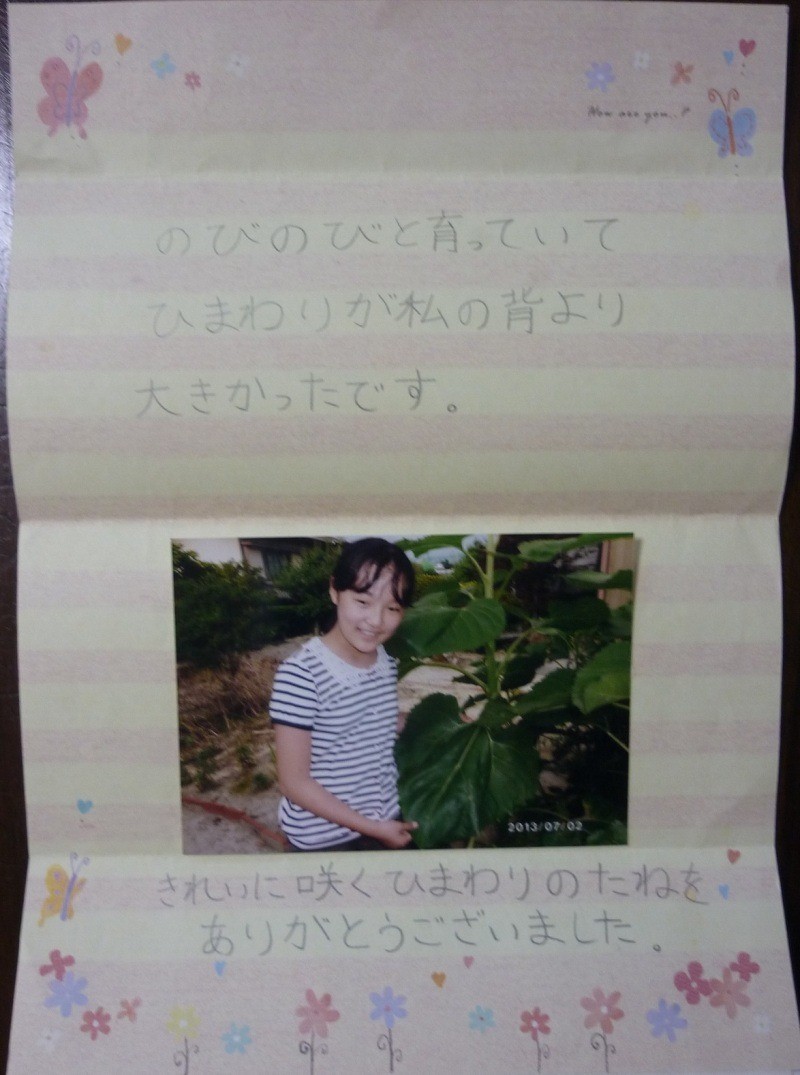 How are you..?
のびのびと育っていて
ひまわりが私の背より
大きかったです。
2013/07/02
きれいに咲くひまわりのたねを
ありがとうございました。